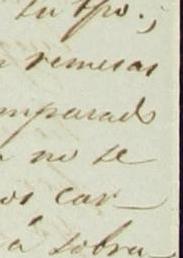 tu tpo.;
remesas
mparado
no se
os car
á sobra